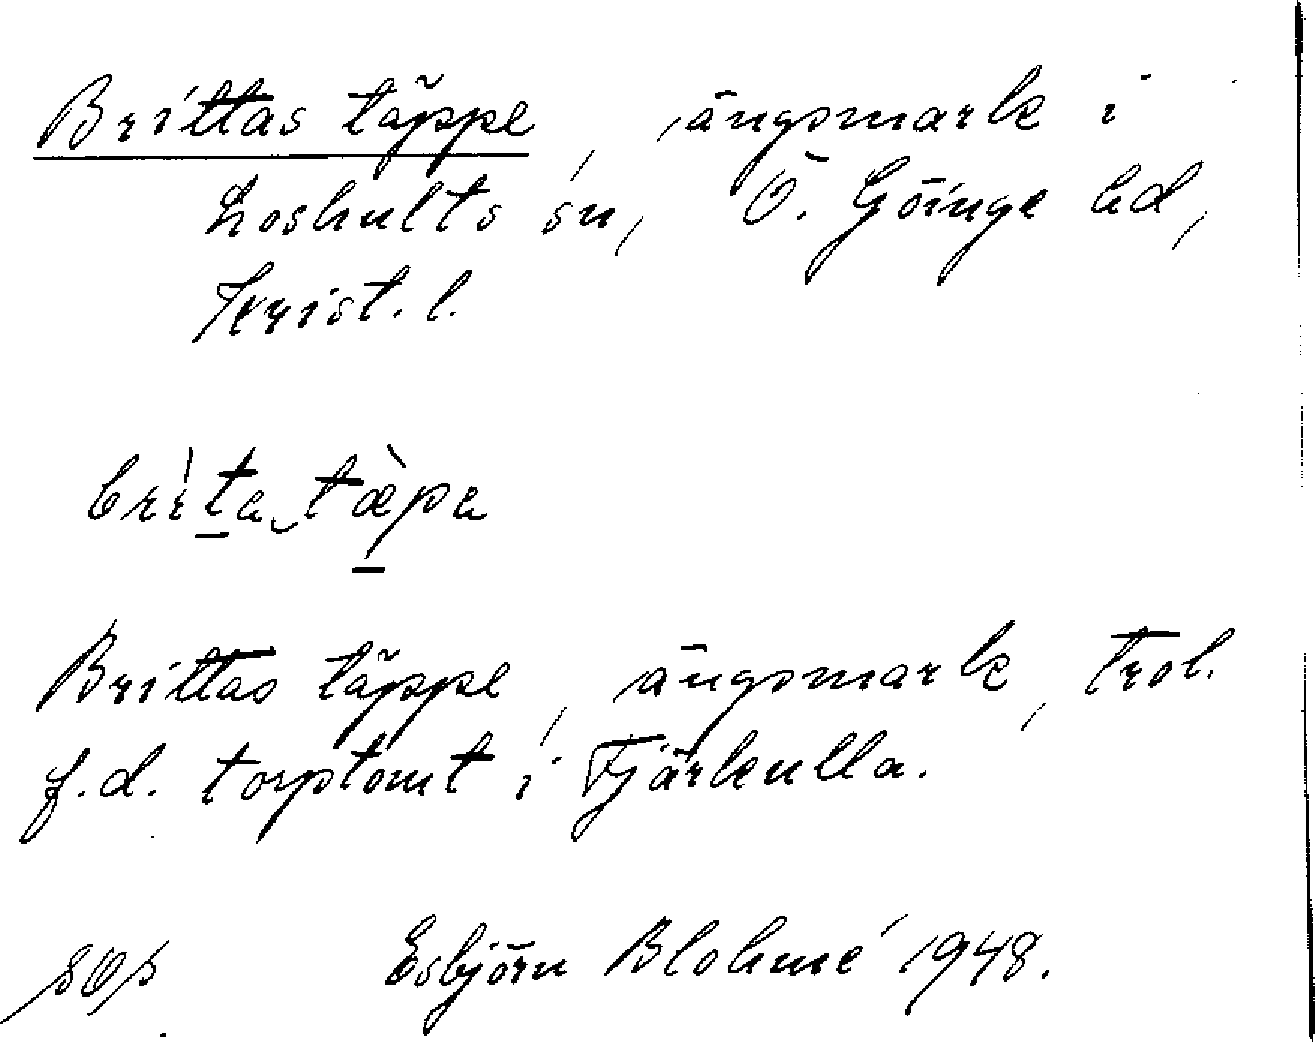 Brittas täppe, ängsmark i
Loshults sn, Ö. Göinge hd,
Krist. l.
brìta tæ̀pa
Brittas täppe, ängsmark, trol.
f.d. torptomt i Tjärkulla.
Esbjörn Blohmé 1948.